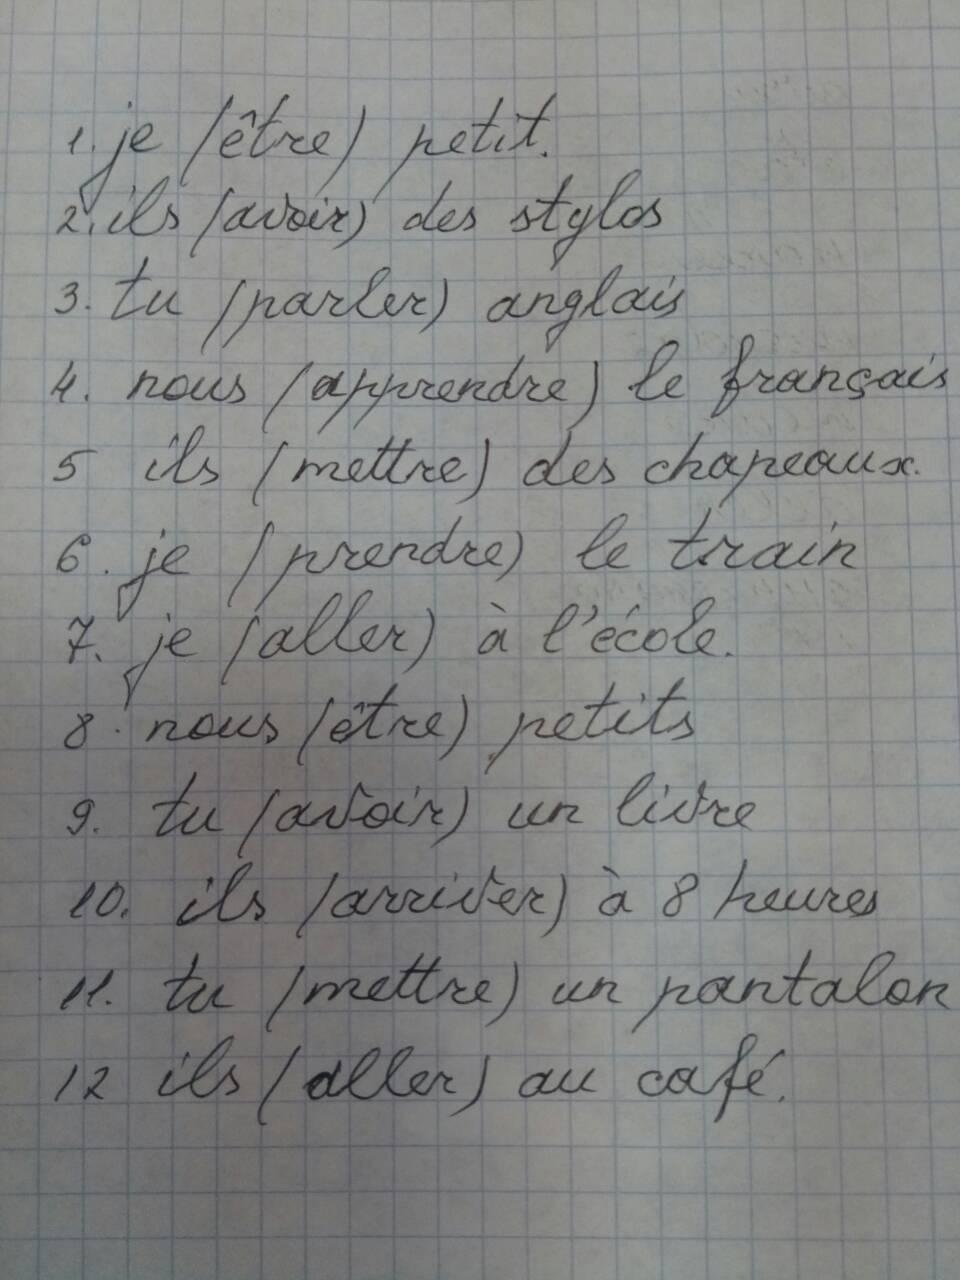 1. je (être) petit.
2. ils (avoir) des stylos
3. tu (parler) anglais
4. nous (apprendre) le français
5 ils (mettre) des chapeaux.
6. je (prendre) le train
7. je (aller) à l'école.
8. nous (être) petits
9. tu (avoir) un livre
10. ils (arriver) à 8 heures
11. tu (mettre) un pantalon
12 ils (aller) au café.